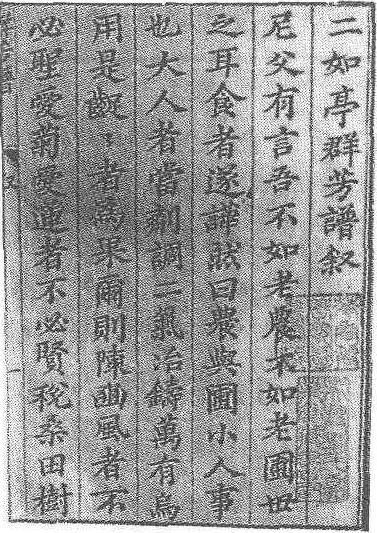 二如亭群芳譜叙
尼父有言吾不如老農不如老圃世
之耳食者遂譁然曰農與圃小人事
也大人者當劑調二氣冶鑄萬有烏
用是齪齪者為果爾則陳豳風者不
必聖愛菊愛蓮者不必賢稅桑田樹